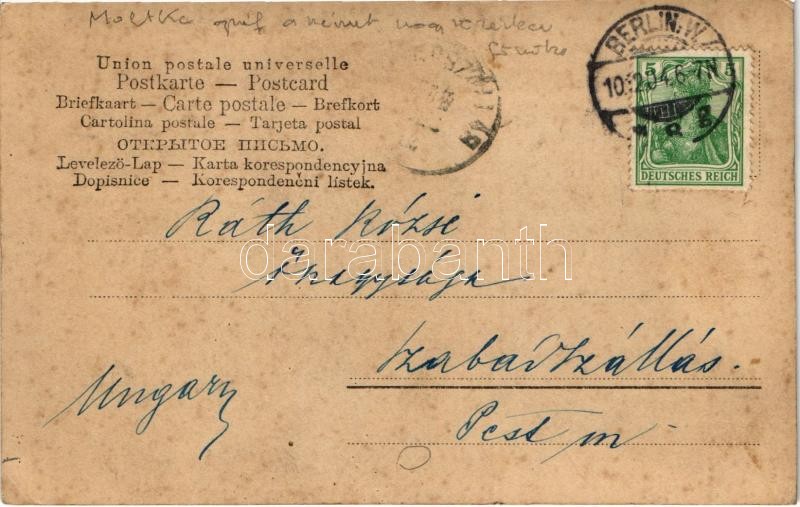 Moltke gróf a német nagy vezérkar
főnöke
Union postale universelle
Postkarte — Postcard
Briefkaart — Carte postale — Brefkort
Cartolina postale — Tarjeta postal
ОТКРЫТОЕ ПИСЬМО.
Levelező-Lap — Karta korespondencyjna
Dopisnice — Korespondenční lístek.
BERLIN. W.
10.12.04. 6-7N
* 8 g
5 5
DEUTSCHES REICH
Ráth Rózsi
őnagysága
Szabadszállás.
Ungarn
Pest m
darabanth